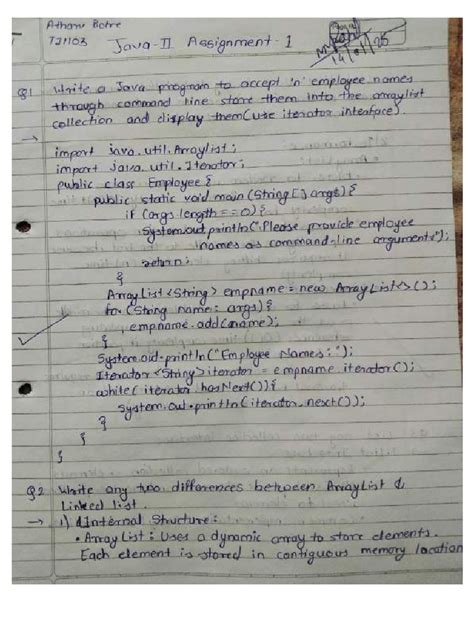 Atharv Botre
TJ1103
Java-II Assignment-1
14/01/25
Q1 Write a Java program to accept 'n' employee names
through command line store them into the arraylist
collection and display them (use iterator interface).
→ import java.util.Arraylist;
import java.util.Iterator;
public class Employee {
public static void main (String[] args) {
if (args length == 0) {
System.out.println("Please provide employee
names as command-line arguments");
return;
}
ArrayList<String> empname = new ArrayList<>();
for (String name: args) {
empname.add(name);
}
System.out.println("Employee Names:");
Iterator<String> iterator = empname.iterator();
while( iterator.hasNext()) {
System.out.println(iterator.next());
}
}
}
Q2 Write any two differences between ArrayList &
Linked list.
→ 1) Internal Structure:
• ArrayList: Uses a dynamic array to store elements.
Each element is stored in contiguous memory location